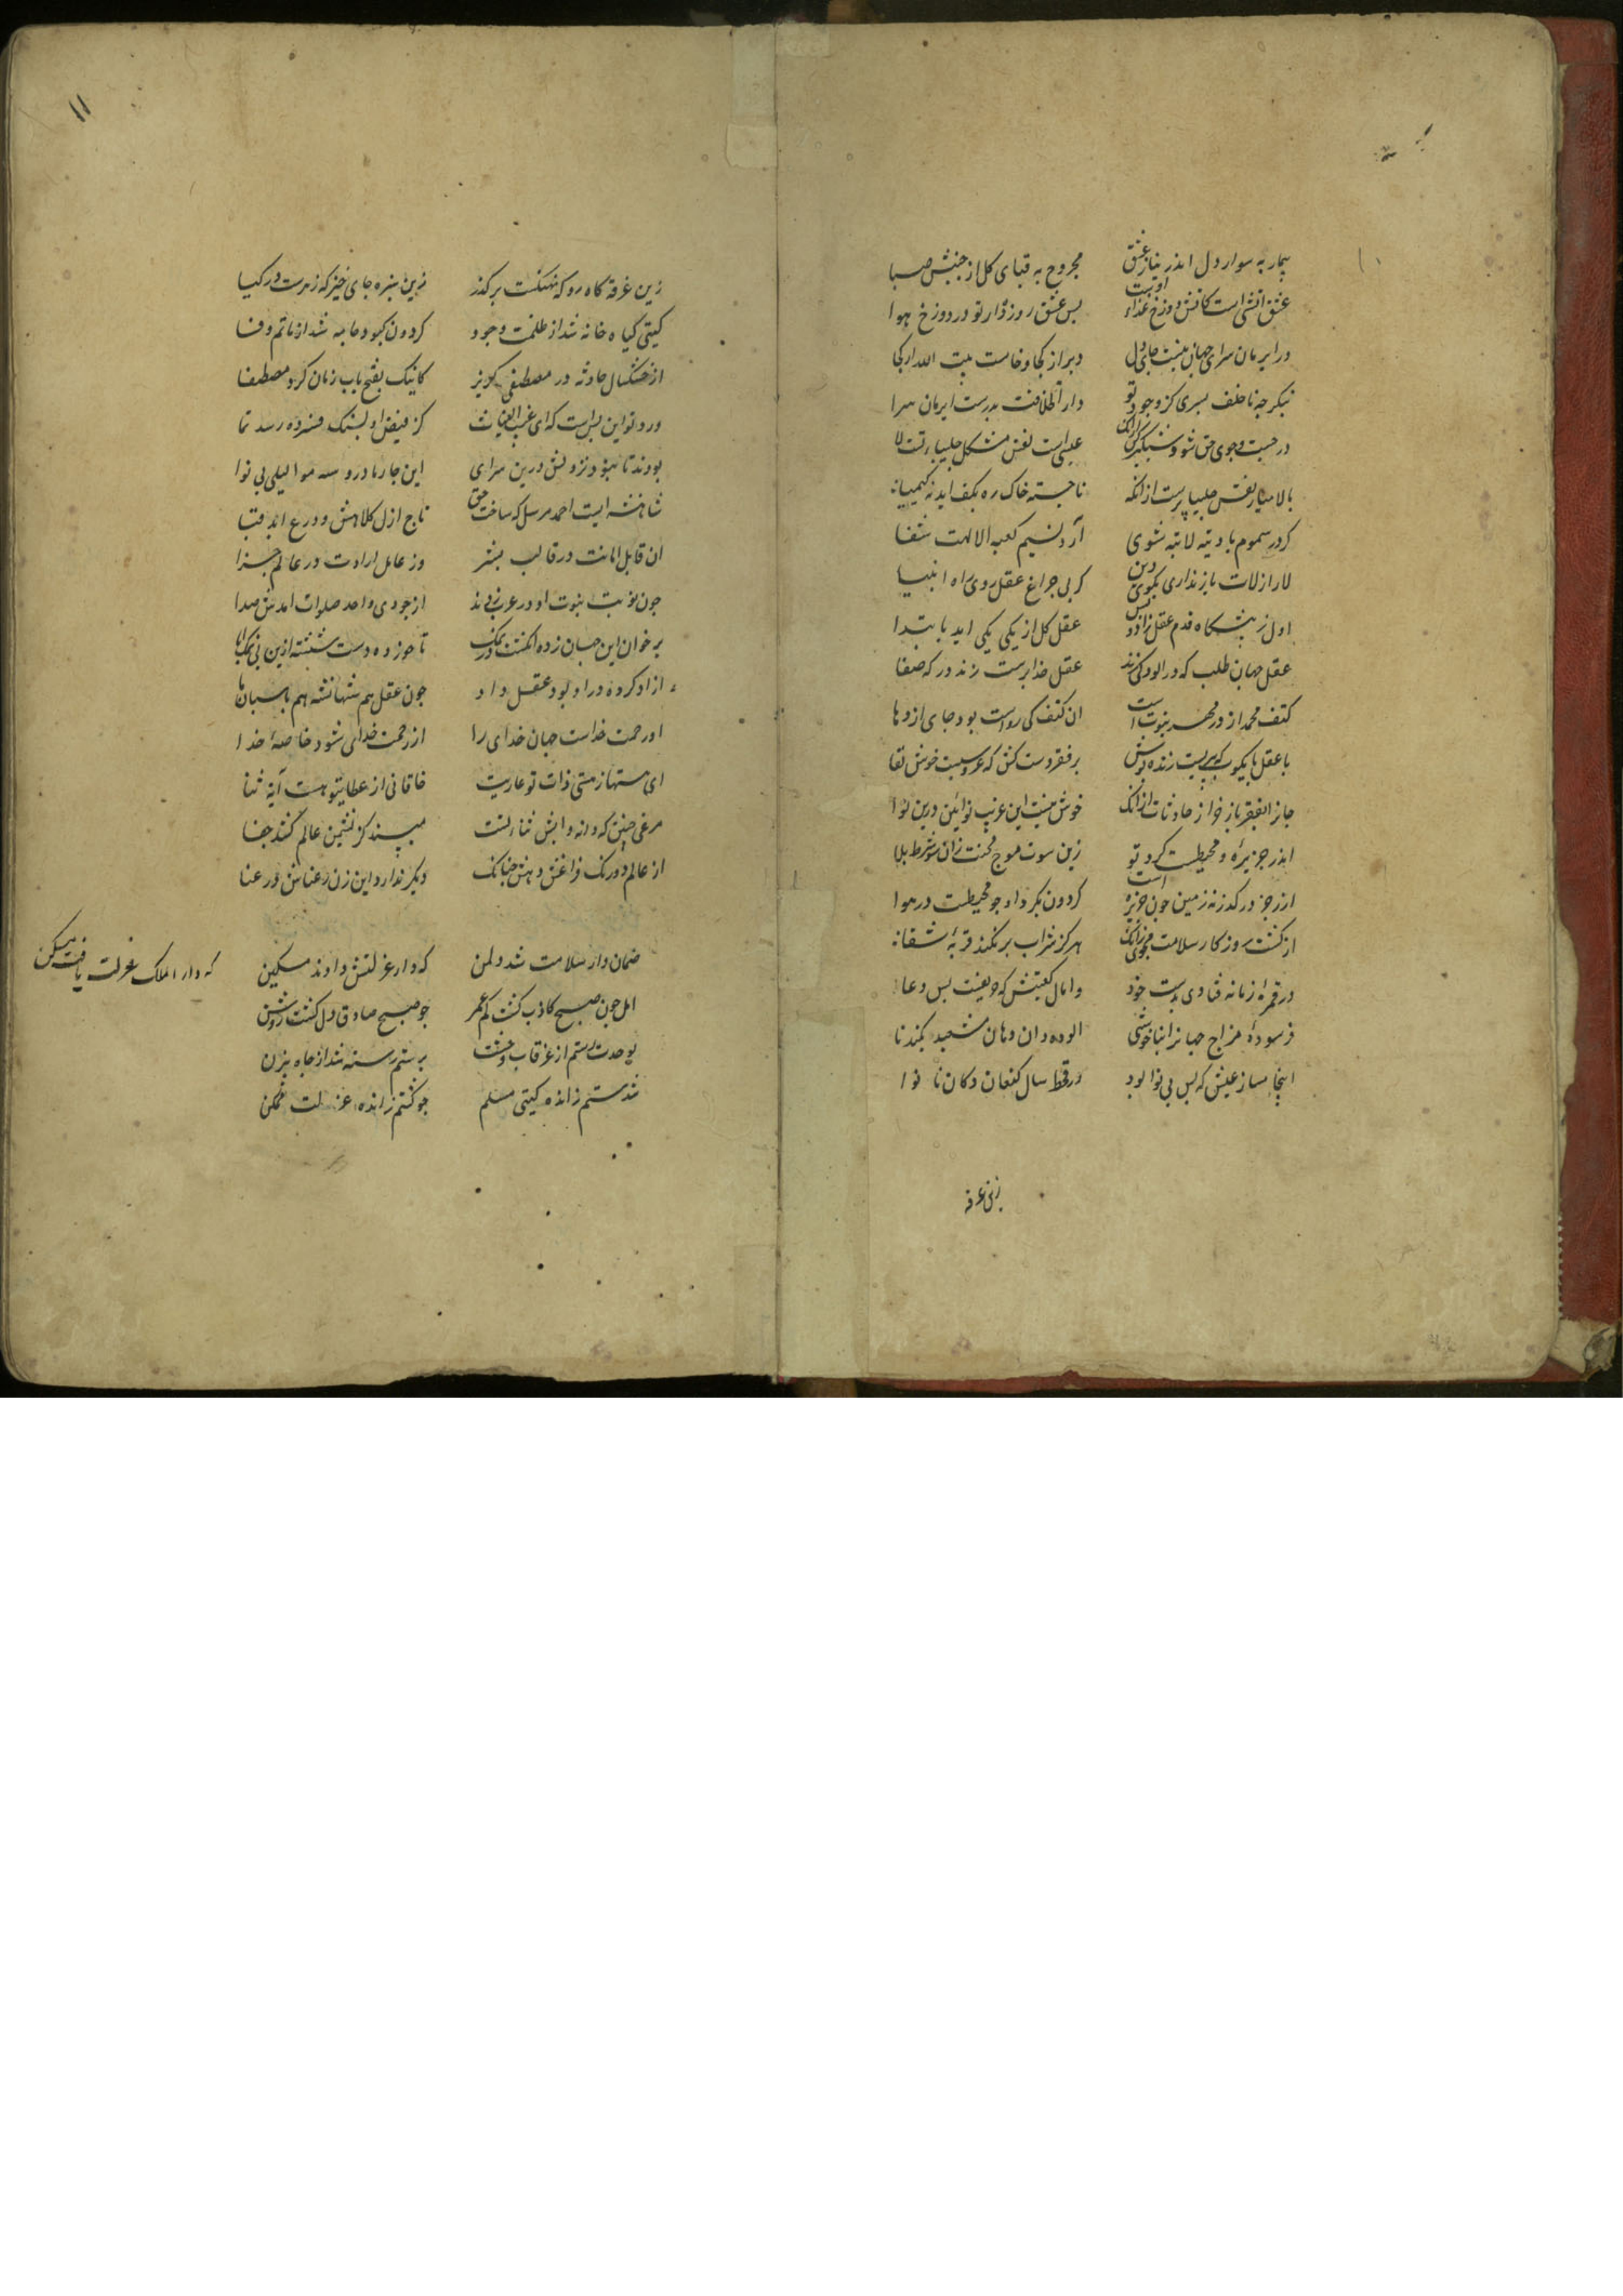 ۱۰
بیمار به سوار دل اندر نیاز عشق
مجروح به قبای کل از جنبش صبا
عشق اتشی است کاتش دوزخ غذاء اوست
بس عشق روزه‌دار تو در دوزخ هوا
در ایرمان سرای جهان نیست جای دل
دیر از کجا و خلعت بیت الله از کجا
بنکر چه ناخلف پسری کز وجود تو
دار الخلافت پدرست ایرمان سرا
در جست و جوی حق شو و شبکیر کن از انک
ناجسته خاک ره بکف اید نه کیمیا
بالا میار نفس چلیپا پرست از انکه
عیسی است نفس مشکل چلیپاءتست لا
کر در سموم بادیه لا تبه شوی
آرد نسیم کعبه الا الهت شفا
لا را ز لات باز ندانی بکوی دین
کر بی چراغ عقل روی راه انبیا
اول ز پیشکاه قدم عقل زاد و بس
عقل کل از یکی یکی اید بابتدا
عقل جهان طلب که در الودکی زند
عقل خدا پرست زند درکه صفا
کتف محمد از در مهر نبوت است
ان کتف کی رواست بود جای اژدها
با عقل پای کوب که پیریست ژنده پوش
بر فقر دست کش که عروسیست خوش لقا
جان را بفقر باز خر از حادثات از انک
خوش نیست این غریب نوائین درین نوا
اندر جزیرهٔ و محیطست کرد تو
زین سوت موج محنت و زان سو شط بلا
از رجز درکذر نه زمین چون جزیره است
کردون بکرد او چو محیطست در هوا
از کشت روزکار سلامت مجوی از انک
هرکز سراب بر نکند قربهٔ سقا
در قمره زمانه فتادی بدست خود
وامال کعبتین که حریفست بس دغا
فرسودهٔ مزاج جهان را بناخوشی
الوده دان دهان مشعبد بکندنا
اینجا مساز عیش که بس بی نوا بود
در قحط سال کنعان دکان نانوا
زین غرقه
۱۱
زین غرقه کاه رو که نهنکست برکذر
زین سبزه جای خیز که زهرست در کیا
کیتی سیاه خانه شد از ظلمت وجود
کردون کبود جامه شد از ماتم وفا
از خشکسال حادثه در مصطفی کریز
کانیک بفتح باب ضمان کرد مصطفا
ورد تو این بس است که ای غیث الغیاث
کز فیض او بسنک فسرده رسد نما
بودند تا نبود نزولش درین سرای
این چار مادر و سه موالیل بی نوا
شاهنشه‌ایست احمد مرسل که ساخت حق
تاج ازل کلاهش و درع ابد قبا
ان قابل امانت در قالب بشر
وز عامل ارادت در عالم جزا
چون نوبت نبوت او در عرب زدند
از جودی و احد صلوات امدش صدا
بر خوان این جهان زده انکشت در نمک
ناخورده دست شسته ازین بی نمک ابا
ازاد کرده در او بود عقل و او
چون عقل هم شهانشه هم پاسبان ما
او رحمت خداست جهان خدای را
از رحمت خدای شود خاصهٔ خدا
ای هستها ز هستی ذات تو عاریت
خاقانی از عطای تو هست آیهٔ ثنا
مرغی چنین که دانه و ابش ثنای تست
مپسند کز نشیمن عالم کشد جفا
از عالم دو رنک فراغش دهش چنانک
دیکر ندارد این زن رعناش در عنا
ضمان دار سلامت شد دل من
که دار عزلتش دادند مسکن
که دار الملک عزلت یافت مسکن
امل چون صبح کاذب کشت کم عمر
چو صبح صادق دل کشت روشن
بوحدت رستم از غرقاب وحشت
برستم رسته شد از چاه بیژن
شدستم ز اندهٔ کیتی مسلم
چو کشتم زانده عزلت ممکن